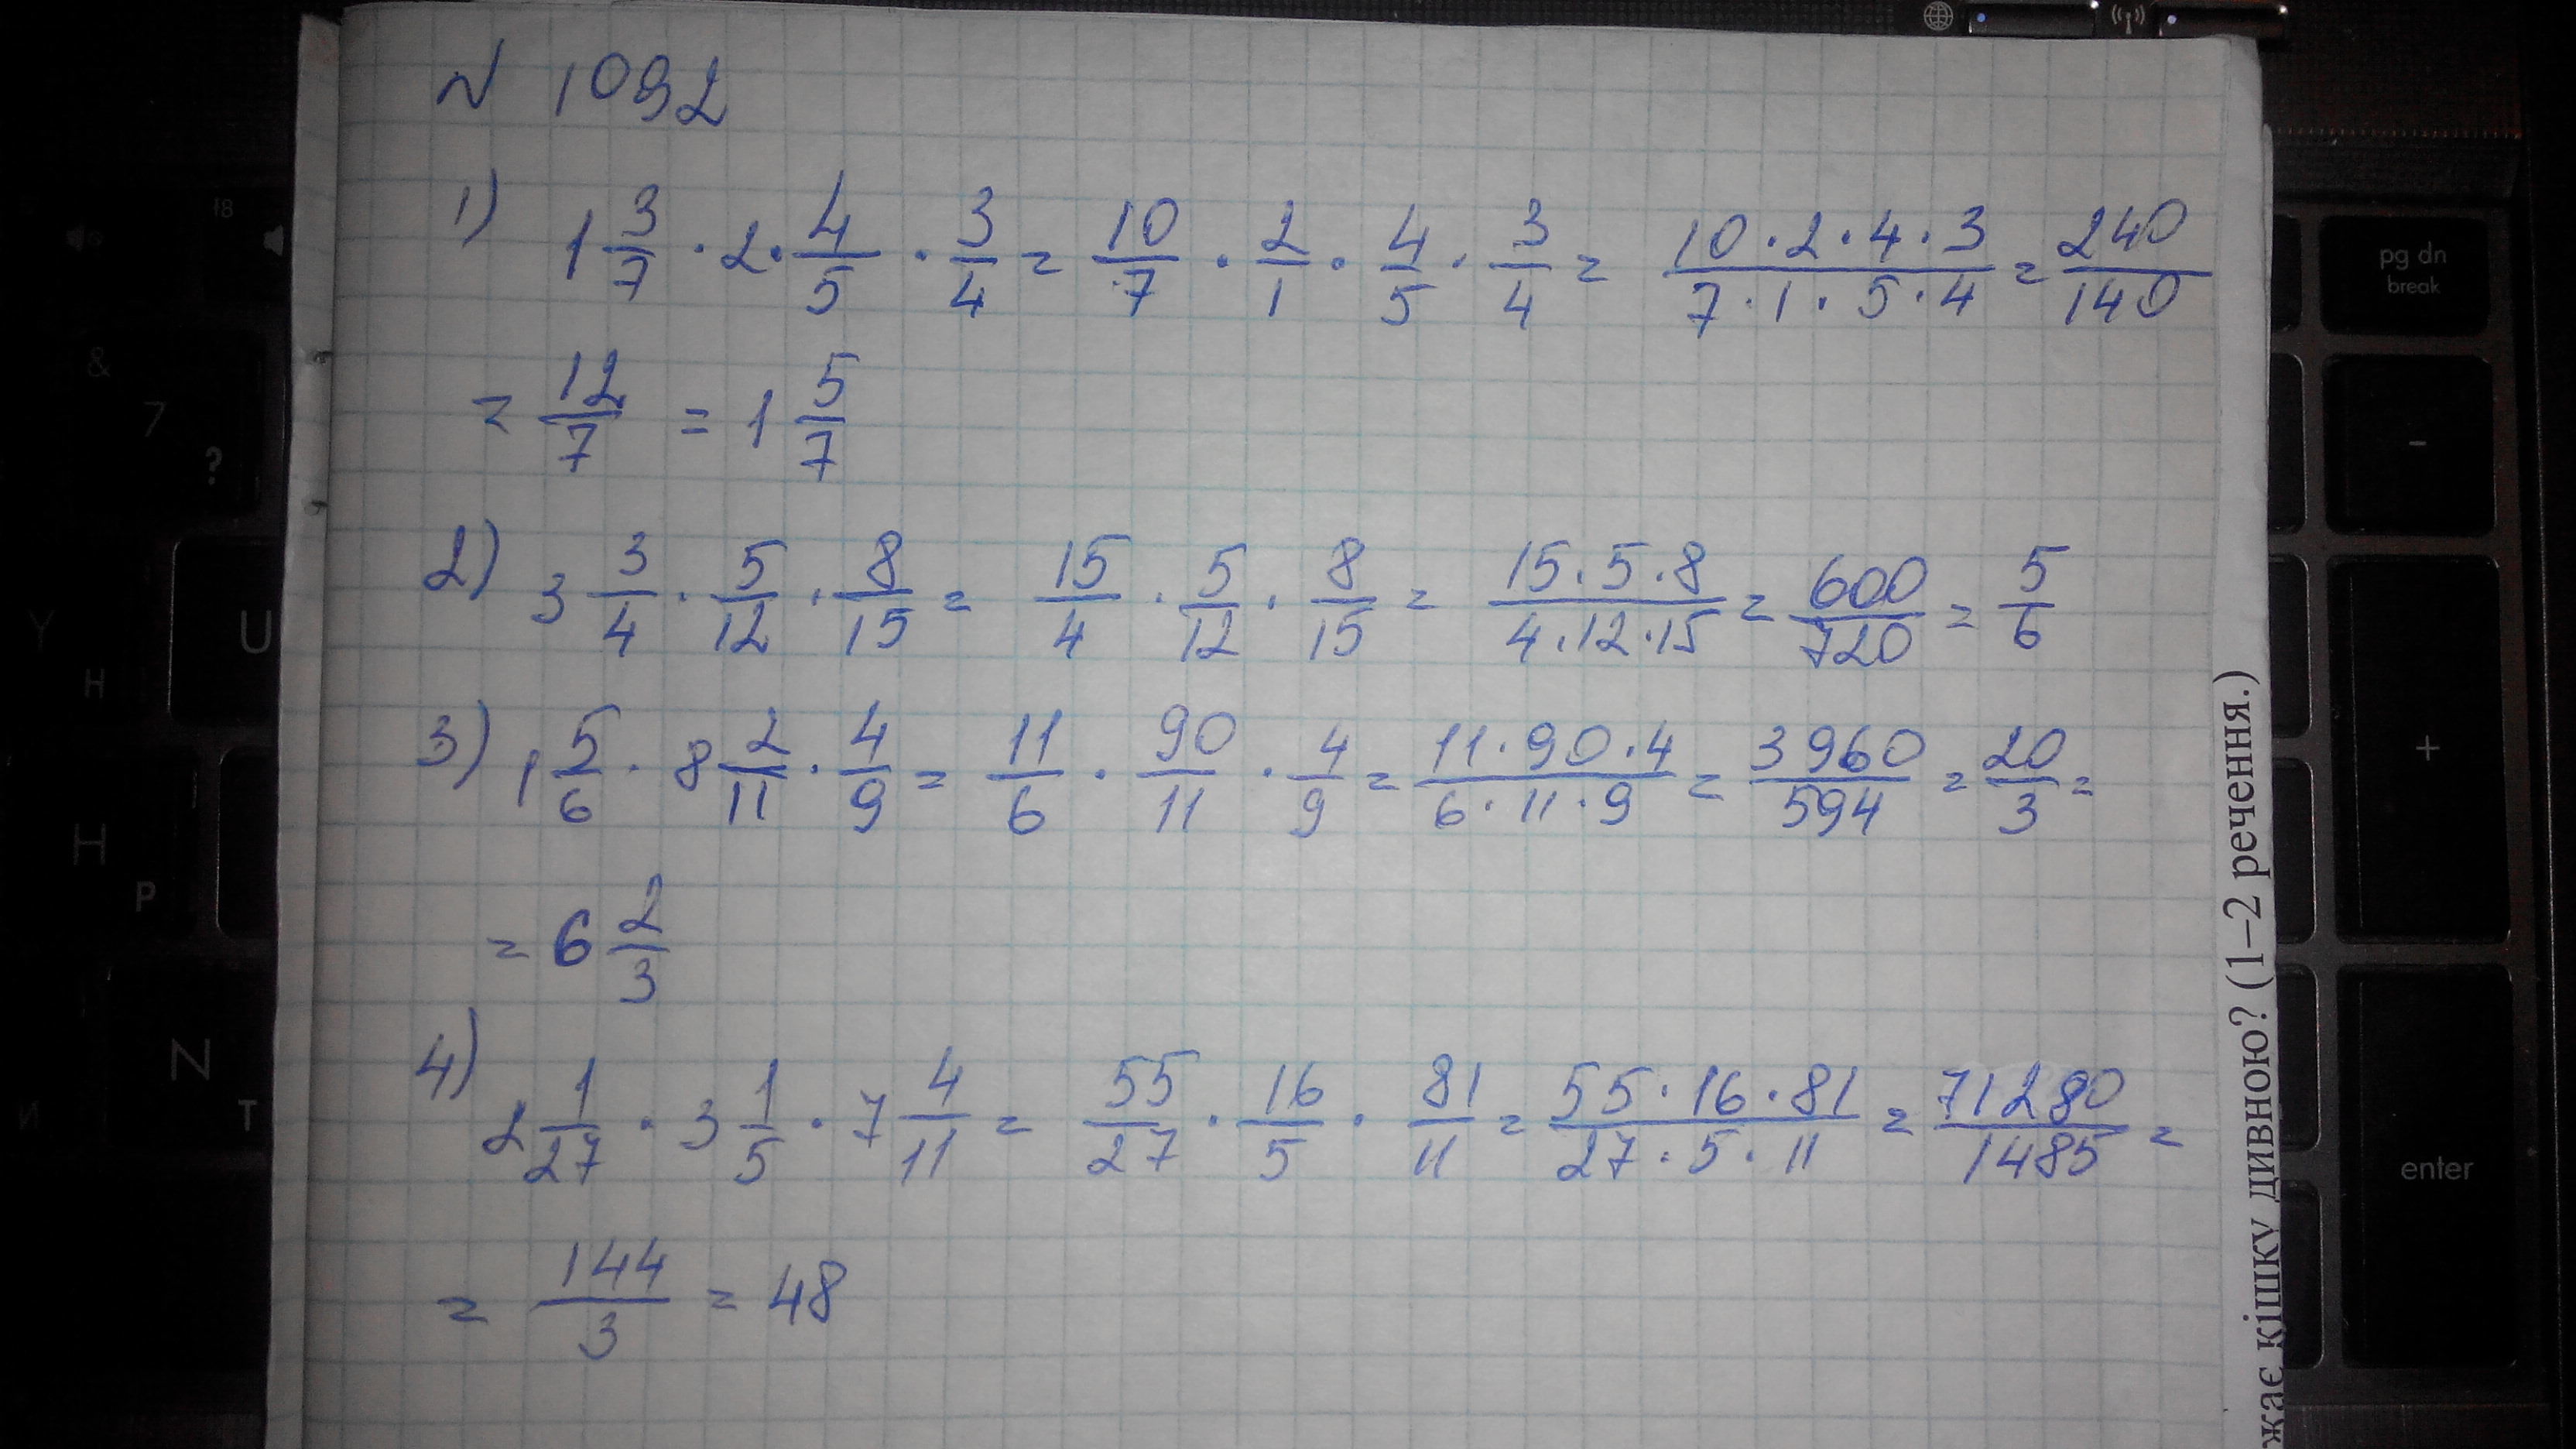 N 1092
1) 1 3/7 · 2 · 4/5 · 3/4 = 10/7 · 2/1 · 4/5 · 3/4 = 10·2·4·3/7·1·5·4 = 240/140
= 12/7 = 1 5/7
2) 3 3/4 · 5/12 · 8/15 = 15/4 · 5/12 · 8/15 = 15·5·8/4·12·15 = 600/720 = 5/6
3) 1 5/6 · 8 2/11 · 4/9 = 11/6 · 90/11 · 4/9 = 11·90·4/6·11·9 = 3960/594 = 20/3 =
= 6 2/3
4) 2 1/27 · 3 1/5 · 7 4/11 = 55/27 · 16/5 · 81/11 = 55·16·81/27·5·11 = 71280/1485 =
= 144/3 = 48
жає кішку дивною? (1–2 речення.)
f8
&
7
?
Y
U
H
H
P
N
T
И
pg dn
break
-
+
enter